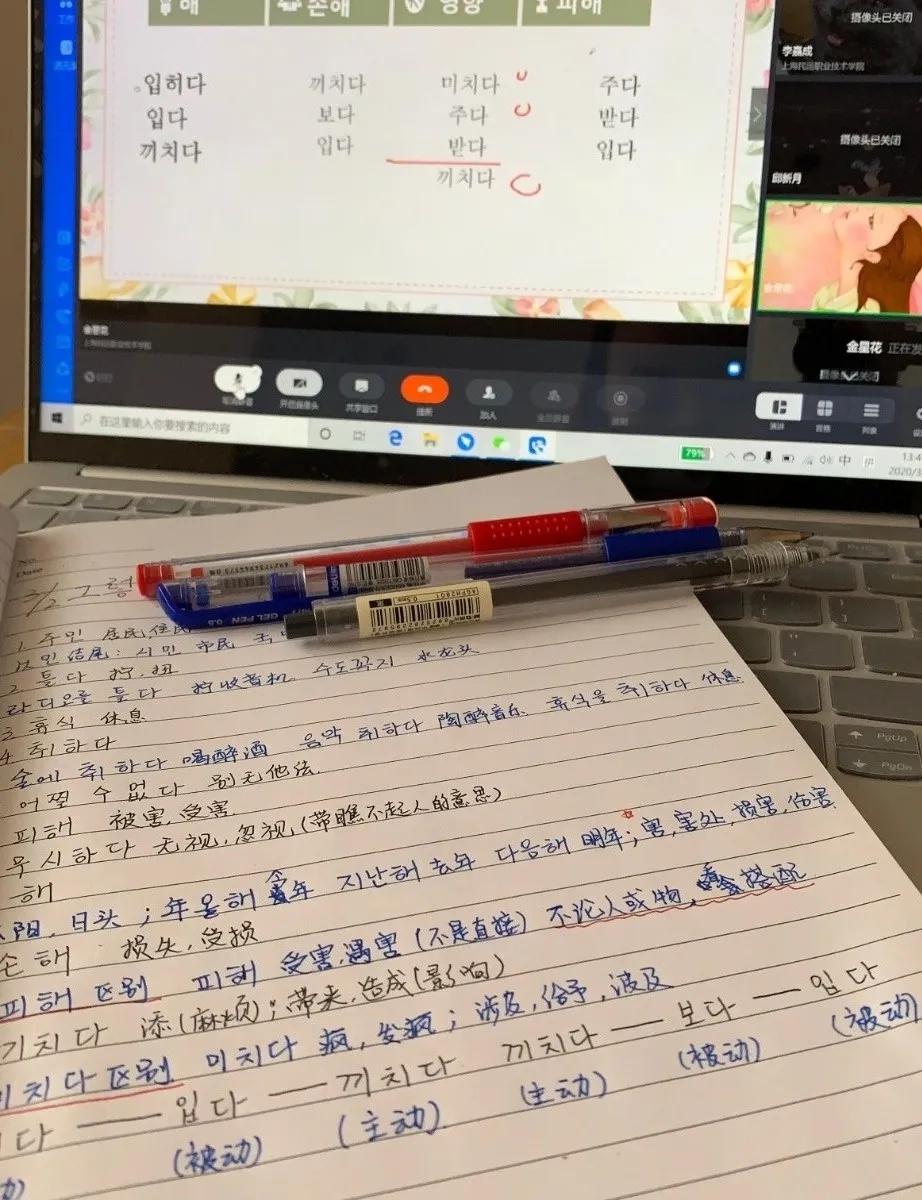 해 손해 영향 피해
입히다 끼치다 미치다 주다
입다 보다 주다 받다
끼치다 입다 받다 입다
끼치다
摄像头已关闭
李嘉成
上海民远职业技术学院
摄像头已关闭
邱新月
金星花
金星花 正在发
摄像头已关闭
金星花
取消静音 开启摄像头 共享窗口 挂断 加入 全员静音
演讲 宫格 列表
在这里输入你要搜索的内容
79%
中
拼
13:4
2020/3
GEL PEN 0.5
AGPH2801
0.5mm
PgUp
PgDn
No.
Date
3/2 그렇
1. 주민 居民,住民
인结尾: 시민 市民
2 틀다 拧,扭
라디오를 틀다 拧收音机 수도꼭지 水龙头
3 휴식 休息
4 취하다
술에 취하다 喝醉酒 음악 취하다 陶醉音乐 휴식을 취하다 休息
어쩔 수 없다 别无他法
피해 被害,受害
무시하다 无视,忽视,(带瞧不起人的意思)
해
阳,日头;年올해 今年 지난해 去年 다음해 明年;害,害处,损害,伤害
손해 损失,受损
피해 区别 피해 受害,遇害(不是直接)不论人或物, 搭配
끼치다 添(麻烦);带来,造成(影响)
미치다区别 미치다 疯,发疯;涉及,给予,波及
다 — 입다 — 끼치다 끼치다 — 보다 — 입다
(被动) (主动) (主动) (被动) (被动)